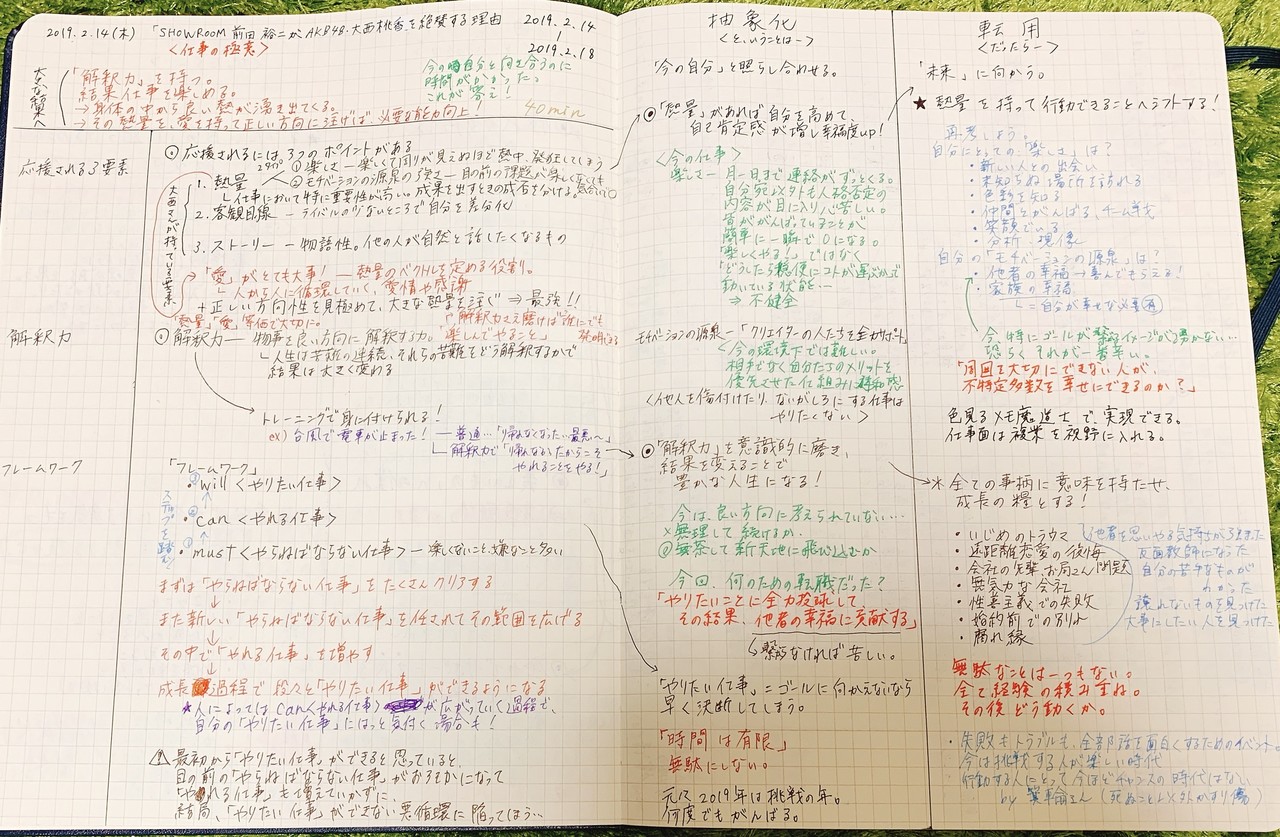 2019.2.14(木)
「SHOWROOM 前田裕二がAKB48・大西桃香を絶賛する理由
<仕事の極意>
2019.2.14
2019.2.18
大きな結果へ
「解釈力」を持つ。
結果仕事を楽しめる。
→身体の中から良い熱が湧き出てくる。
→その熱量を、愛を持って正しい方向に注げば、必要な能力向上!
今の時自分と向き合うのに
時間がかかった
これが答え!
40min
応援される3要素
⦿応援されるには3つのポイントがある
大西さんが持っている要素
1.熱量
2タイプ
①楽しさ―楽しくて周りが見えぬほど熱中、発狂してしまう
②モチベーションの源泉の強さ―目の前の課題が楽しくなくても
└仕事において特に重要性が高い。成果を出すときの成否を分ける。
2.客観目線―ライバルの少ないところで自分を差分化
3.ストーリー―物語性。他の人が自然と話したくなるもの
→「愛」がとても大事!―熱量のベクトルを定める役割。
└人から人に循環していく、愛情や感謝
+正しい方向性を見極めて、大きな熱量を注ぐ⇒最強!!
「熱量」「愛」等価で大切に。
「解釈力さえ磨けば誰にでも
「楽しんでやること」
解釈力
⦿解釈力―物事を良い方向に解釈する力。
└人生は苦難の連続、それらの苦難をどう解釈するかで
結果は大きく変わる
トレーニングで身に付けられる!
ex)台風で電車が止まった!―普通…「帰れなくなった…最悪〜」
└解釈力で「帰れなくなったからこそ
やれることをやる!」
フレームワーク
「フレームワーク」
・will<やりたい仕事>
・can<やれる仕事>
・must<やらねばならない仕事>―楽しくないこと、嫌なこと多い
ステップを踏む
まずは「やらねばならない仕事」をたくさんクリアする
↓
また新しい「やらねばならない仕事」を任されてその範囲を広げる
↓
その中で「やれる仕事」を増やす
↓
成長過程で段々と「やりたい仕事」ができるようになる
★人によってはcan<やれる仕事>が広がっていく過程で、
自分の「やりたい仕事」にはっと気付く場合も!
⚠最初から「やりたい仕事」ができると思っていると、
目の前の「やらねばならない仕事」がおろそかになって
「やれる仕事」も増えていかずに、
結局、「やりたい仕事」ができない悪循環に陥ってしまう…
抽象化
<ということは―>
「今の自分」と照らし合わせる。
⦿「熱量」があれば自分を高めて、
自己肯定感が増し幸福度up!
<今の仕事>
楽しさ―月〜日まで連絡がずっとくる。
自分宛以外も人格否定の
内容が目に入り心苦しい。
皆ががんばっていることが
簡単に一瞬で0になる。
「楽しくやる!」ではなく
「どうしたら穏便にコトが運ぶか」で
動いている状態を…
⇒不健全
モチベーションの源泉―「クリエイターの人たちを全力サポート」
<今の環境下では難しい。
相手でなく自分たちのメリットを
優先させた仕組みに違和感
<他人を傷付けたり、ないがしろにする仕事は
やりたくない>
⦿「解釈力」を意識的に磨き、
結果を変えることで
豊かな人生になる!
今は、良い方向に考えられていない…
×無理して続けるか、
◎無茶して新天地に飛び込むか
今回、何のための転職だった?
「やりたいことに全力投球して
その結果、他者の幸福に貢献する」
↳なければ苦しい。
「やりたい仕事」=ゴールに向かえないなら
早く決断してしまう。
「時間は有限」
無駄にしない。
元々2019年は挑戦の年。
何度でもがんばる。
転用
<だったら―>
「未来」に向かう。
★熱量を持って行動できることへシフトする!
再考しよう。
自分にとっての「楽しさ」は?
・新しい人との出会い
・未知らぬ場所を訪れる
・色彩を知る
・仲間とがんばる、チーム戦
・笑顔でいる
・分析・現像
自分の「モチベーションの源泉」は?
・他者の幸福→喜んでもらえる!
・家族の幸福
└=自分が幸せな必要
今特にゴールがイメージが湧かない…
恐らくそれが一番辛い。
「周囲を大切にできない人が、
不特定多数を幸せにできるのか?」
色見るメモ魔道士で実現できる。
仕事面は複業を視野に入れる。
＊全ての事柄に意味を持たせ、
成長の糧とする!
・いじめのトラウマ
・遠距離恋愛の後悔
・会社の先輩お局さん問題
・無気力な会社
・性善主義での失敗
・婚約前での別れ
・腐れ縁
他者を思いやる気持ちが
反面教師になった
自分の苦手なものが
わかった
譲れないものを見つけた
大事にしたい人を見つけた
無駄なことは一つもない。
全て経験の積み重ね。
その後どう動くか。
・失敗もトラブルも、全部話を面白くするためのイベント。
今は挑戦する人が楽しい時代
行動する人にとって今ほどチャンスの時代はない
by 箕輪さん (死ぬこと以外かすり傷)